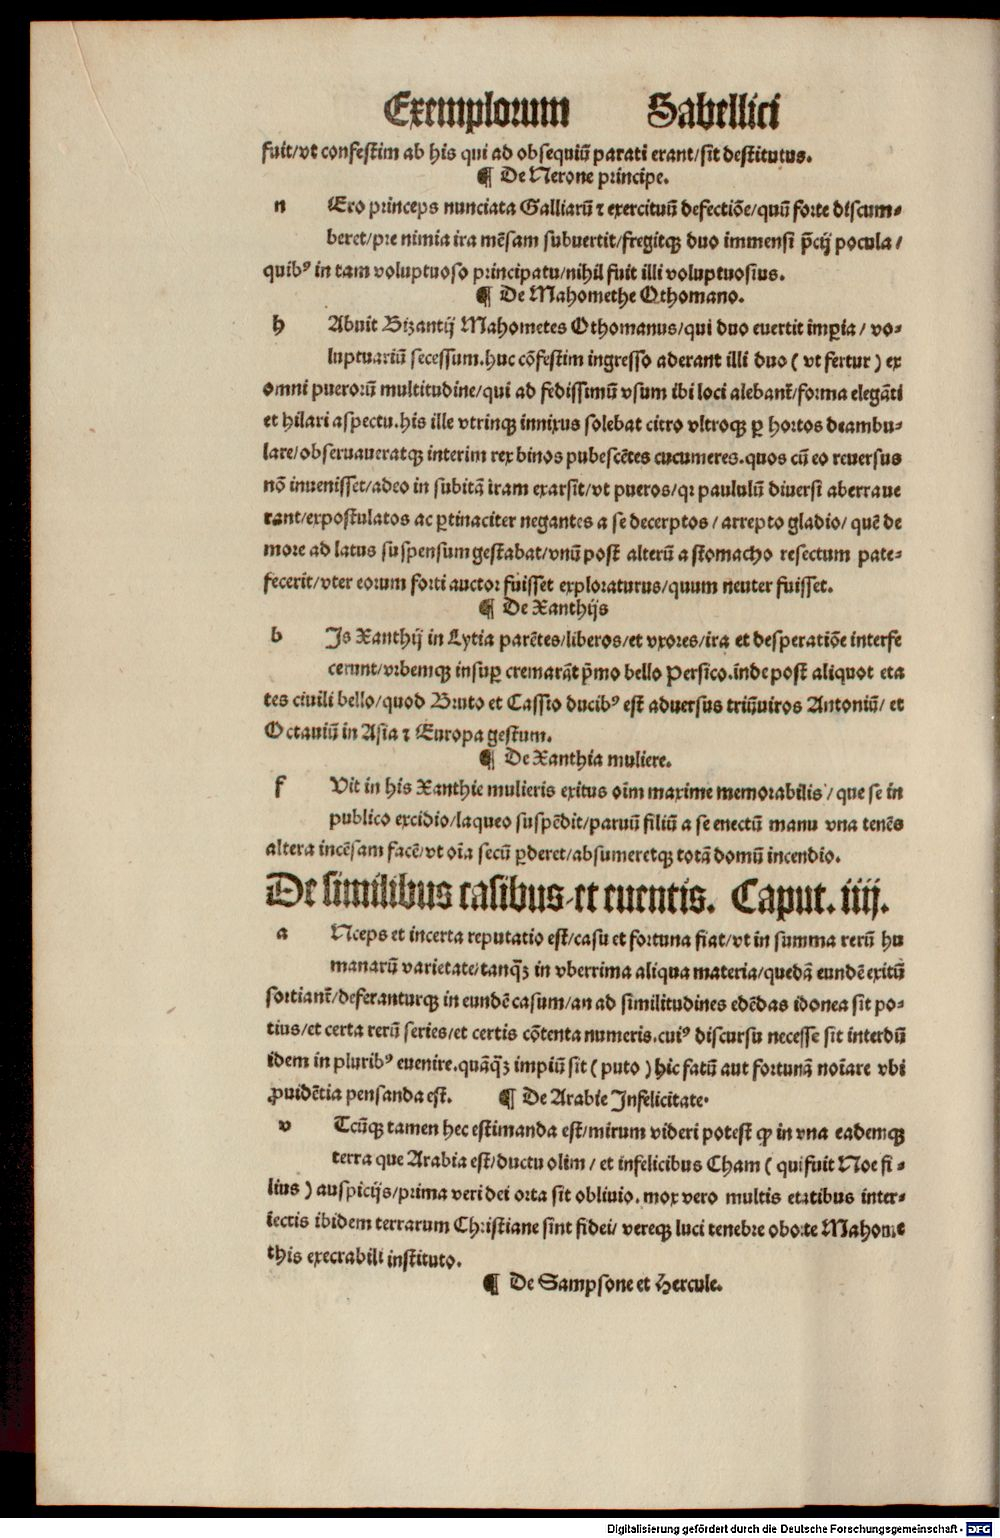 Exemplorum Sabellici
fuit/vt confestim ab his qui ad obsequiū parati erant/sit destitutus.
¶ De Nerone principe.
n Ero princeps nunciata Galliarū ⁊ exercituū defectiōe/quū forte discum⸗
beret/pre nimia ira mēsam subuertit/fregitqꝫ duo immensi p̄cij pocula/
quibꝰ in tam voluptuoso principatu/nihil fuit illi voluptuosius.
¶ De Mahomethe Othomano.
h Abuit Bizantij Mahometes Othomanus/qui duo euertit imꝑia/ vo⸗
luptuariū secessum.huc cōfestim ingresso aderant illi duo ( vt fertur ) ex
omni puerorū multitudine/qui ad fedissimū vsum ibi loci alebant̄/forma elegāti
et hilari aspectu.his ille vtrinqꝫ innixus solebat citro vltroqꝫ ꝑ hortos deambu⸗
lare/obseruaueratqꝫ interim rex binos pubescētes cucumeres.quos cū eo reuersus
nō inuenisset/adeo in subitā iram exarsit/vt pueros/qꝛ paululū diuersi aberraue
rant/expostulatos ac ꝑtinaciter negantes a se decerptos / arrepto gladio/ quē de
more ad latus suspensum gestabat/vnū post alterū a stomacho resectum pate⸗
fecerit/vter eorum forti auctor fuisset exploraturus/quum neuter fuisset.
¶ De Xanthijs
b Is Xanthij in Lytia parētes/liberos/et vxores/ira et desperatiōe interfe
cerunt/vrbemqꝫ insuꝑ cremarāt p̄mo bello Persico.inde post aliquot eta
tes ciuili bello/quod Bruto et Cassio ducibꝰ est aduersus triūuiros Antoniū/ et
Octauiū in Asia ⁊ Europa gestum.
¶ De Xanthia muliere.
f Vit in his Xanthie mulieris exitus oīm maxime memorabilis / que se in
publico excidio/laqueo suspēdit/paruū filiū a se enectū manu vna tenēs
altera incēsam facē/vt oīa secū ꝑderet/absumeretqꝫ totā domū incendio.
De similibus casibus et euentis. Caput. iiij.
a Nceps et incerta reputatio est/casu et fortuna fiat/vt in summa rerū hu
manarū varietate/tanqꝫ̄ in vberrima aliqua materia/quedā eundē exitū
sortiant̄/deferanturqꝫ in eundē casum/an ad similitudines edēdas idonea sit po⸗
tius/et certa rerū series/et certis cōtenta numeris.cuiꝰ discursu necesse sit interdū
idem in pluribꝰ euenire.quāqꝫ̄ impiū sit ( puto ) hic fatū aut fortunā noīare vbi
ꝓuidētia pensanda est. ¶ De Arabie Infelicitate.
v Tcūqꝫ tamen hec estimanda est/mirum videri potest ꝙ in vna eademqꝫ
terra que Arabia est/ductu olim / et infelicibus Cham ( qui fuit Noe fi⸗
lius ) auspicijs/prima veri dei orta sit obliuio. mox vero multis etatibus inter⸗
iectis ibidem terrarum Christiane sint fidei/ vereqꝫ luci tenebre oborte Mahome
this execrabili instituto.
¶ De Sampsone et Hercule.
Digitalisierung gefördert durch die Deutsche Forschungsgemeinschaft - DFG